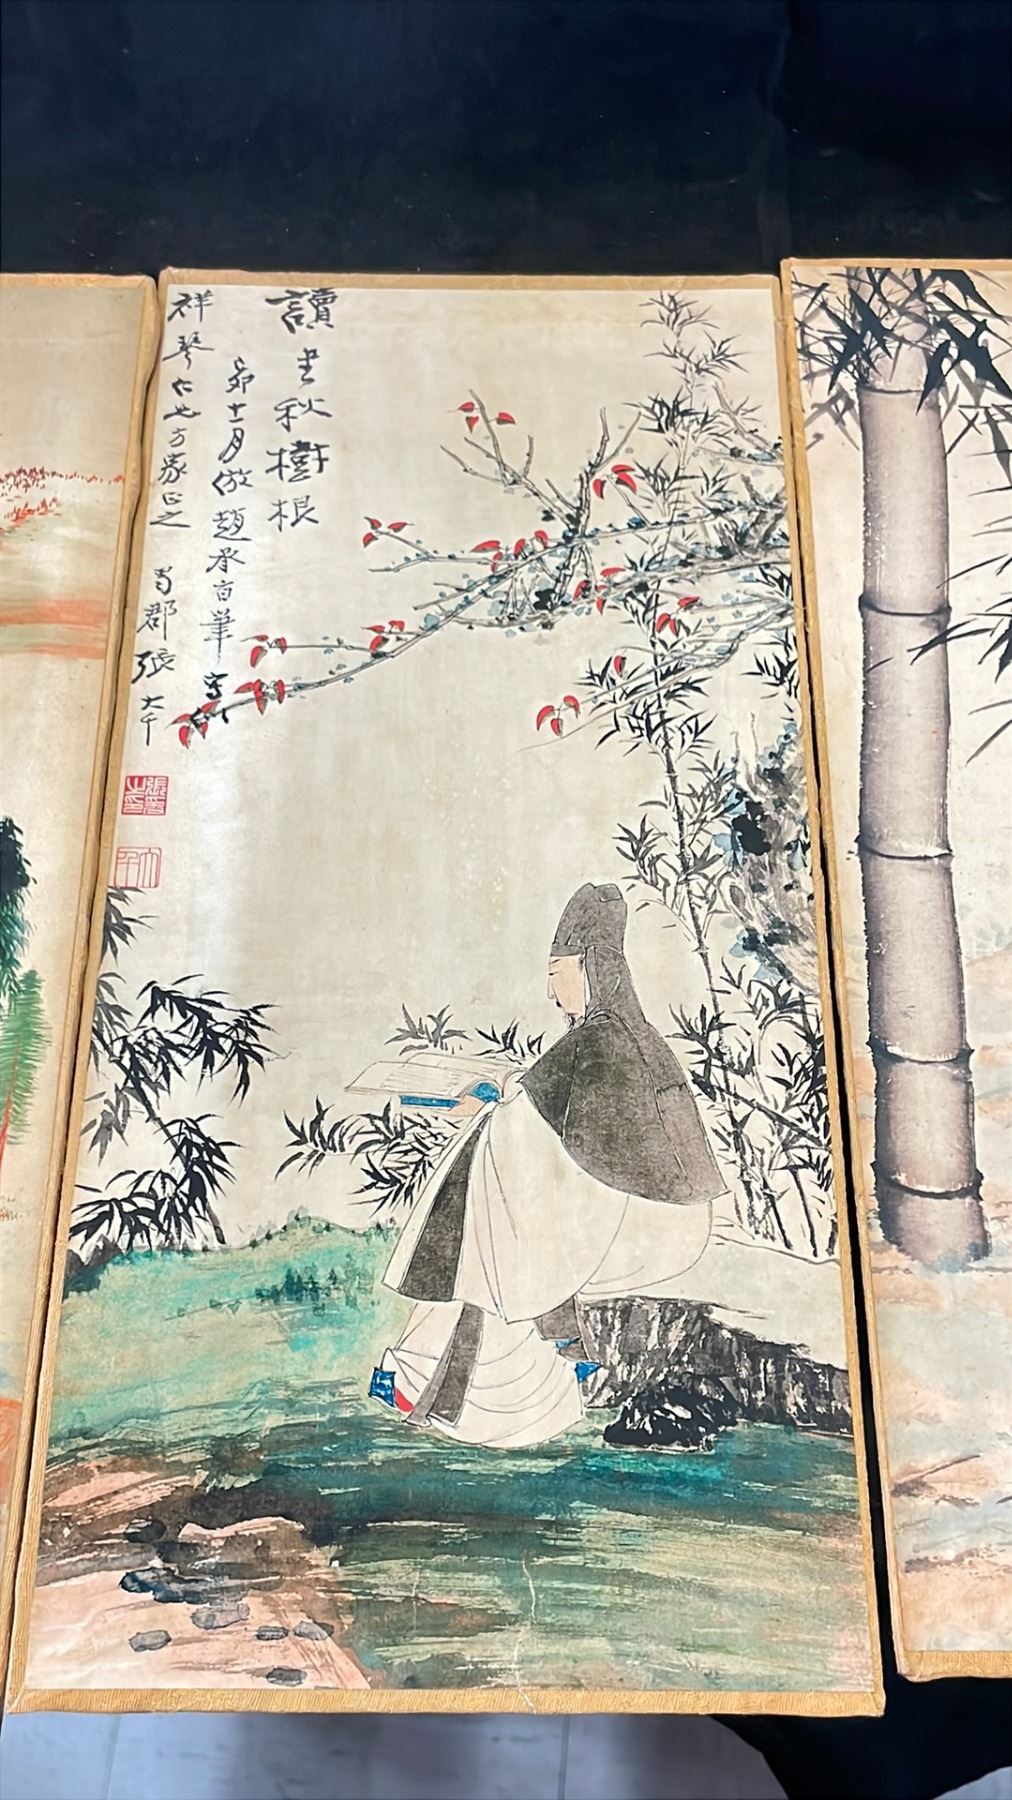 讀書秋樹根
己卯十一月倣趙承旨筆寫
祥琴仁世方家正之
蜀郡張大千
張爰之印
大千